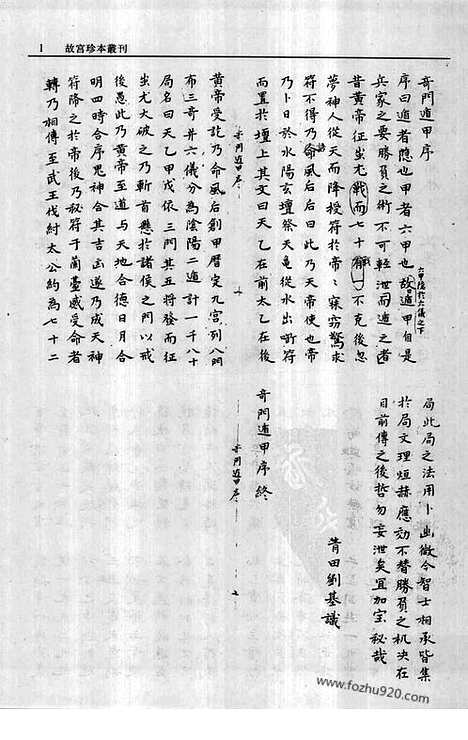 故宮珍本叢刊
1
奇門遁甲序
序曰遁者隱也甲者六甲也故遁甲但是
六甲隱於六儀之下
兵家之要勝負之術不可輕泄而遁之者
昔黄帝征蚩尤戰而七十不克後忽
夢神人從天而降授符於帝寤驚求
符不得乃命風后后曰此乃天帝使也帝
乃卜日於水陽玄壇祭天龟從水出啣符
而置於壇上其文曰天乙在前太乙在後
奇門遁甲序
黄帝受訖乃命風后創甲曆定九宮列八門
布三奇并六儀分為陰陽二遁計一千八十
局名曰天乙甲戊依三門其五将發而征
蚩尤大破之乃斬首懸於諸侯之門以戒
後愚此乃黄帝至道与天地合德日月合
明四時合序鬼神合其吉凶遂乃成天神
符降之於帝後乃秘符于蘭臺感受命者
轉乃相傳至武王伐紂太公約為七十二
局此局之法用卜幽微今智士相承皆集
於局文理烜赫應効不替勝負之机决在
目前傳之後哲勿妄泄矣宜加宝秘哉
青田劉基識
奇門遁甲序終
奇門遁甲序
www.fozhu920.com